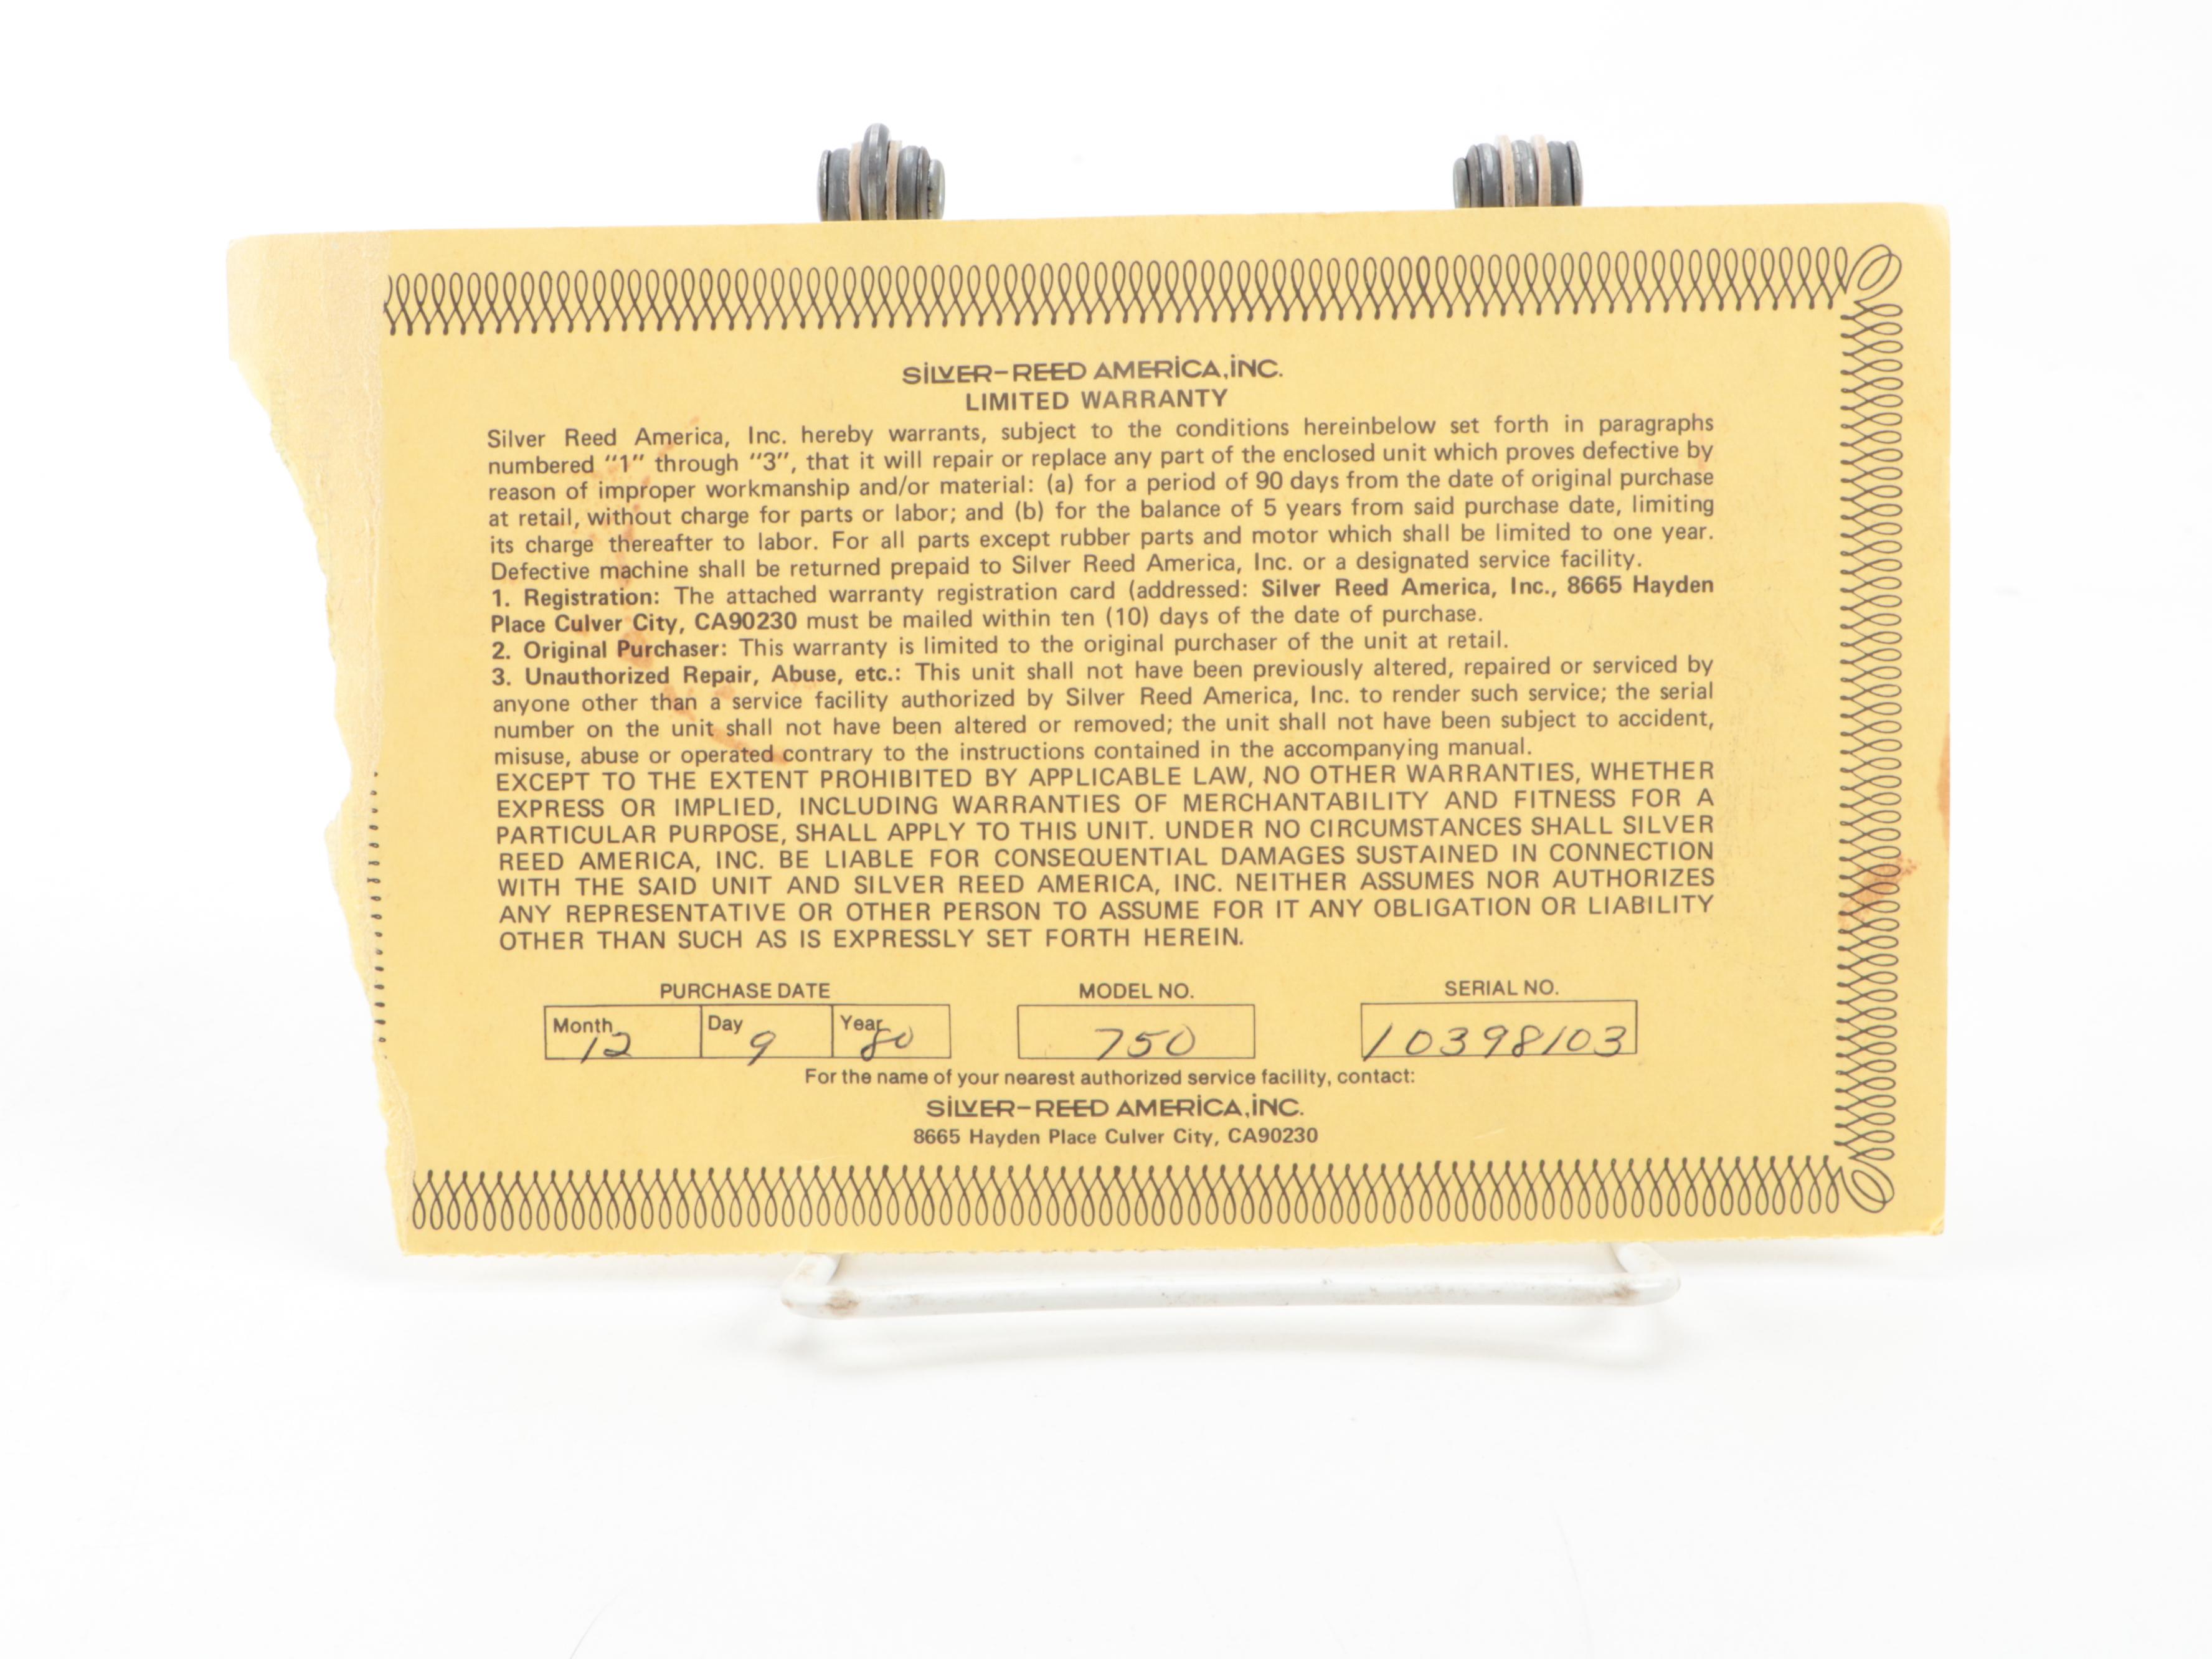 SILVER-REED AMERICA, INC.
LIMITED WARRANTY
Silver Reed America, Inc. hereby warrants, subject to the conditions hereinbelow set forth in paragraphs
numbered "1" through "3", that it will repair or replace any part of the enclosed unit which proves defective by
reason of improper workmanship and/or material: (a) for a period of 90 days from the date of original purchase
at retail, without charge for parts or labor; and (b) for the balance of 5 years from said purchase date, limiting
its charge thereafter to labor. For all parts except rubber parts and motor which shall be limited to one year.
Defective machine shall be returned prepaid to Silver Reed America, Inc. or a designated service facility.
1. Registration: The attached warranty registration card (addressed: Silver Reed America, Inc., 8665 Hayden
Place Culver City, CA90230 must be mailed within ten (10) days of the date of purchase.
2. Original Purchaser: This warranty is limited to the original purchaser of the unit at retail.
3. Unauthorized Repair, Abuse, etc.: This unit shall not have been previously altered, repaired or serviced by
anyone other than a service facility authorized by Silver Reed America, Inc. to render such service; the serial
number on the unit shall not have been altered or removed; the unit shall not have been subject to accident,
misuse, abuse or operated contrary to the instructions contained in the accompanying manual.
EXCEPT TO THE EXTENT PROHIBITED BY APPLICABLE LAW, NO OTHER WARRANTIES, WHETHER
EXPRESS OR IMPLIED, INCLUDING WARRANTIES OF MERCHANTABILITY AND FITNESS FOR A
PARTICULAR PURPOSE, SHALL APPLY TO THIS UNIT. UNDER NO CIRCUMSTANCES SHALL SILVER
REED AMERICA, INC. BE LIABLE FOR CONSEQUENTIAL DAMAGES SUSTAINED IN CONNECTION
WITH THE SAID UNIT AND SILVER REED AMERICA, INC. NEITHER ASSUMES NOR AUTHORIZES
ANY REPRESENTATIVE OR OTHER PERSON TO ASSUME FOR IT ANY OBLIGATION OR LIABILITY
OTHER THAN SUCH AS IS EXPRESSLY SET FORTH HEREIN.
PURCHASE DATE MODEL NO. SERIAL NO.
Month 12 Day 9 Year 80 750 10398103
For the name of your nearest authorized service facility, contact:
SILVER-REED AMERICA, INC.
8665 Hayden Place Culver City, CA90230